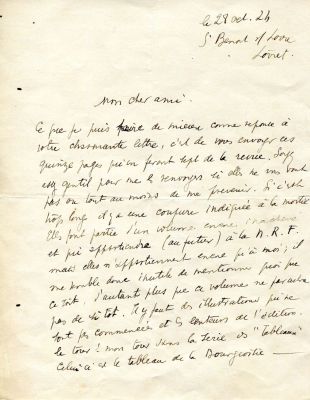 le 28 oct. 24
St Benoit s/ Loire
Loiret.
Mon cher ami.
Ce que je puis faire de mieux comme réponse à
votre charmante lettre, c'est de vous envoyer ces
quinze pages qui en feront sept de la revue. Soyez
assez gentil pour me les renvoyer si elles ne vous vont
pas ou tout au moins de me prévenir. Si c'est
trop long il y a une coupure indiquée à la moitié
Elles font partie d'un volume encore
et qui appartiendra (au futur) à la N.R.F.
mais elles n'appartiennent encore qu'à moi ; il
me semble donc inutile de mentionner quoi que
ce soit. D'autant plus que ce volume ne paraîtra
pas de sitôt. Il y faut des illustrations qui ne
sont pas commencées et les lenteurs de l'édition.
le tour ! mon tour dans la série des "Tableaux"
Celui-ci est le tableau de la Bourgeoisie —